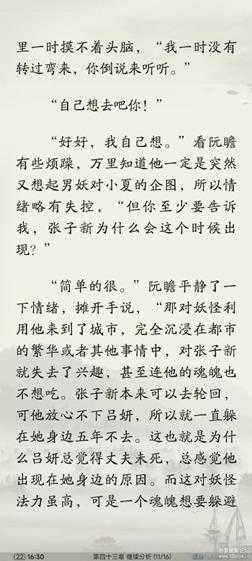 里一时摸不着头脑，“我一时没有
转过弯来，你倒说来听听。”
“自己想去吧你！”
“好好，我自己想。”看阮瞻
有些烦躁，万里知道他一定是突然
又想起男妖对小夏的企图，所以情
绪略有失控，“但你至少要告诉
我，张子新为什么会这个时候出
现？”
“简单的很。”阮瞻平静了一
下情绪，摊开手说，“那对妖怪利
用他来到了城市，完全沉浸在都市
的繁华或者其他事情中，对张子新
就失去了兴趣，甚至连他的魂魄也
不想吃。张子新本来可以去轮回，
可他放心不下吕妍，所以就一直躲
在她身边五年不去。这也就是为什
么吕妍总觉得丈夫未死，总感觉他
出现在她身边的原因。而这对妖怪
法力虽高，可是一个魂魄想要躲避
(22) 16:30
第四十三章 继续分析 (11/16)